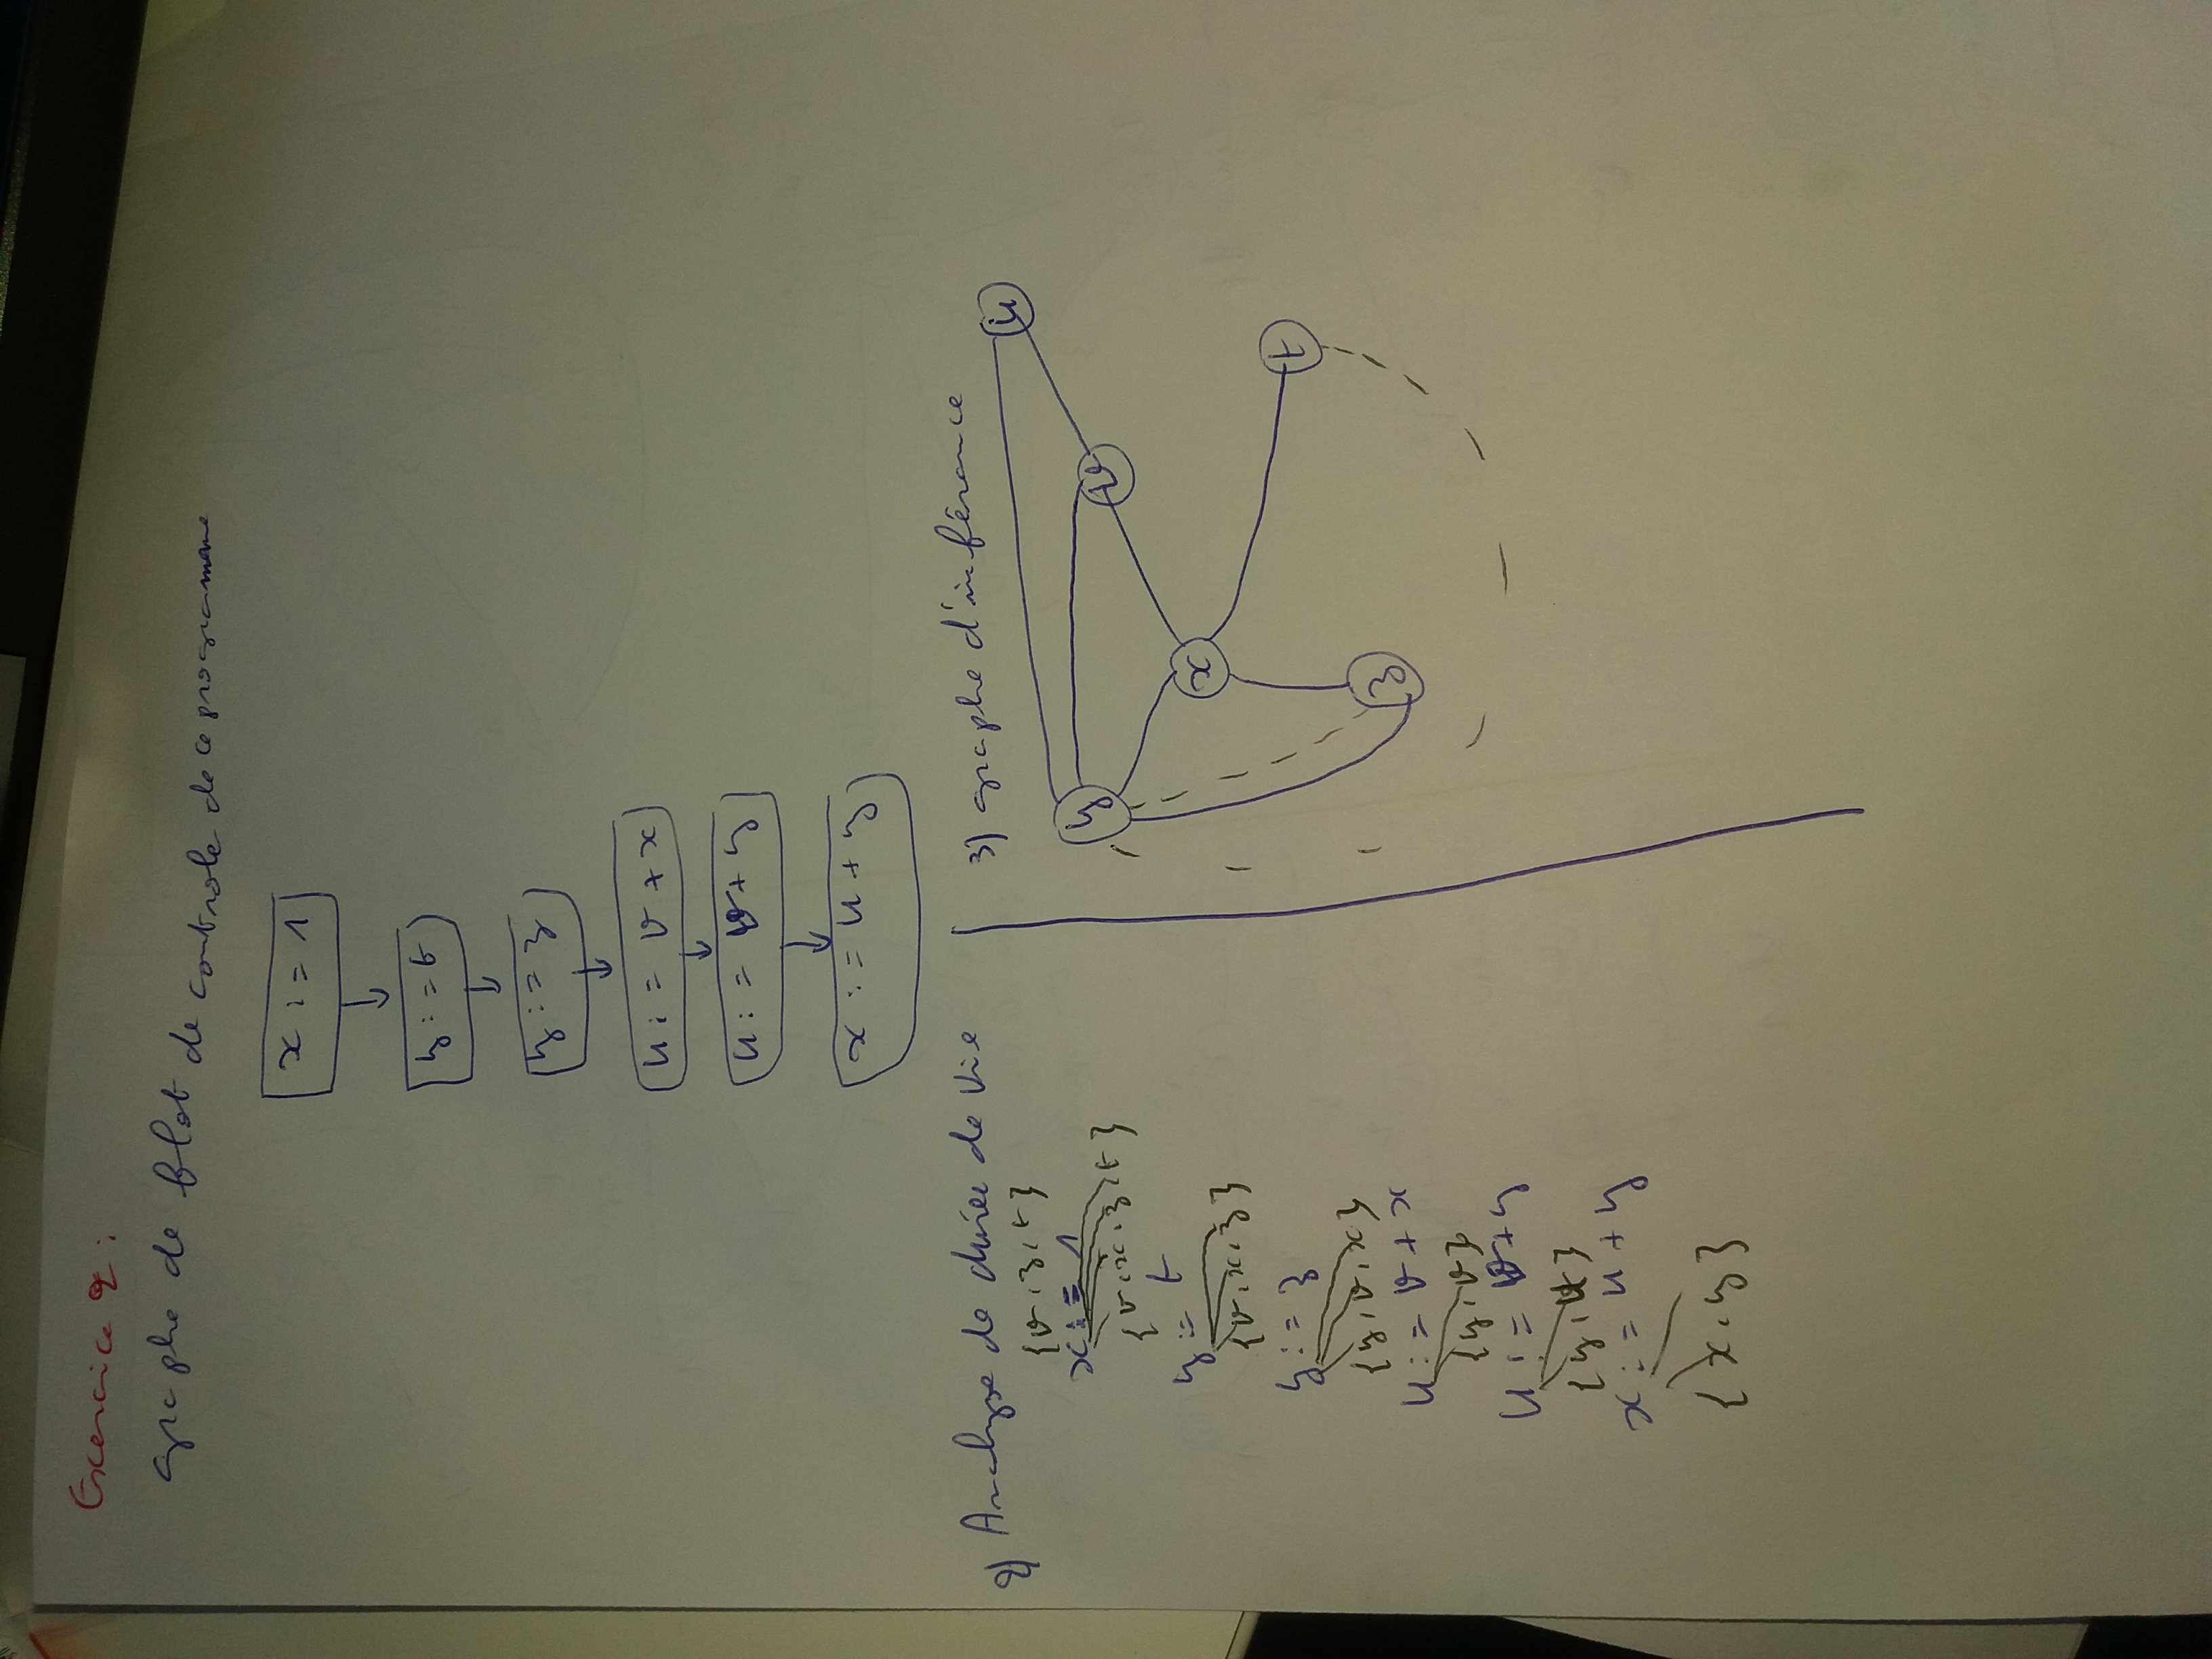 Exercice 2 :
graphe de flot de controle de ce programme
x := 1
y := t
y := z
u := v + x
u := v + y
x := u + y
2) Analyse de durée de vie
{v, z, t}
x := 1
{v, x, z, t}
y := t
{v, x, z}
y := z
{y, v, x}
u := v + x
{y, v}
u := v + y
{y, u}
x := u + y
{x, y}
3) graphe d'inférence
u
y
v
x
t
z